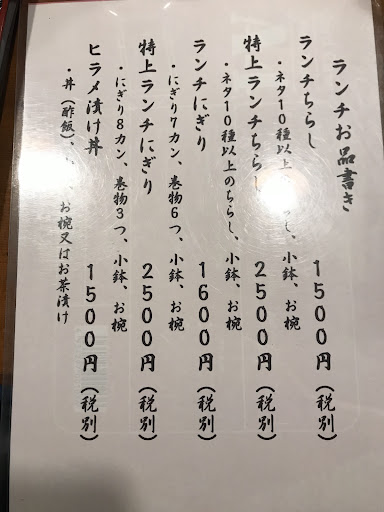 ランチお品書き
ランチちらし 1500円(税別)
・ネタ10種以上 し、小鉢、お椀
特上ランチちらし 2500円(税別)
・ネタ10種以上のちらし、小鉢、お椀
ランチにぎり 1600円(税別)
・にぎり7カン、巻物6つ、小鉢、お椀
特上ランチにぎり 2500円(税別)
・にぎり8カン、巻物3つ、小鉢、お椀
ヒラメ漬け丼 1500円(税別)
・丼(酢飯)、 、お椀又はお茶漬け